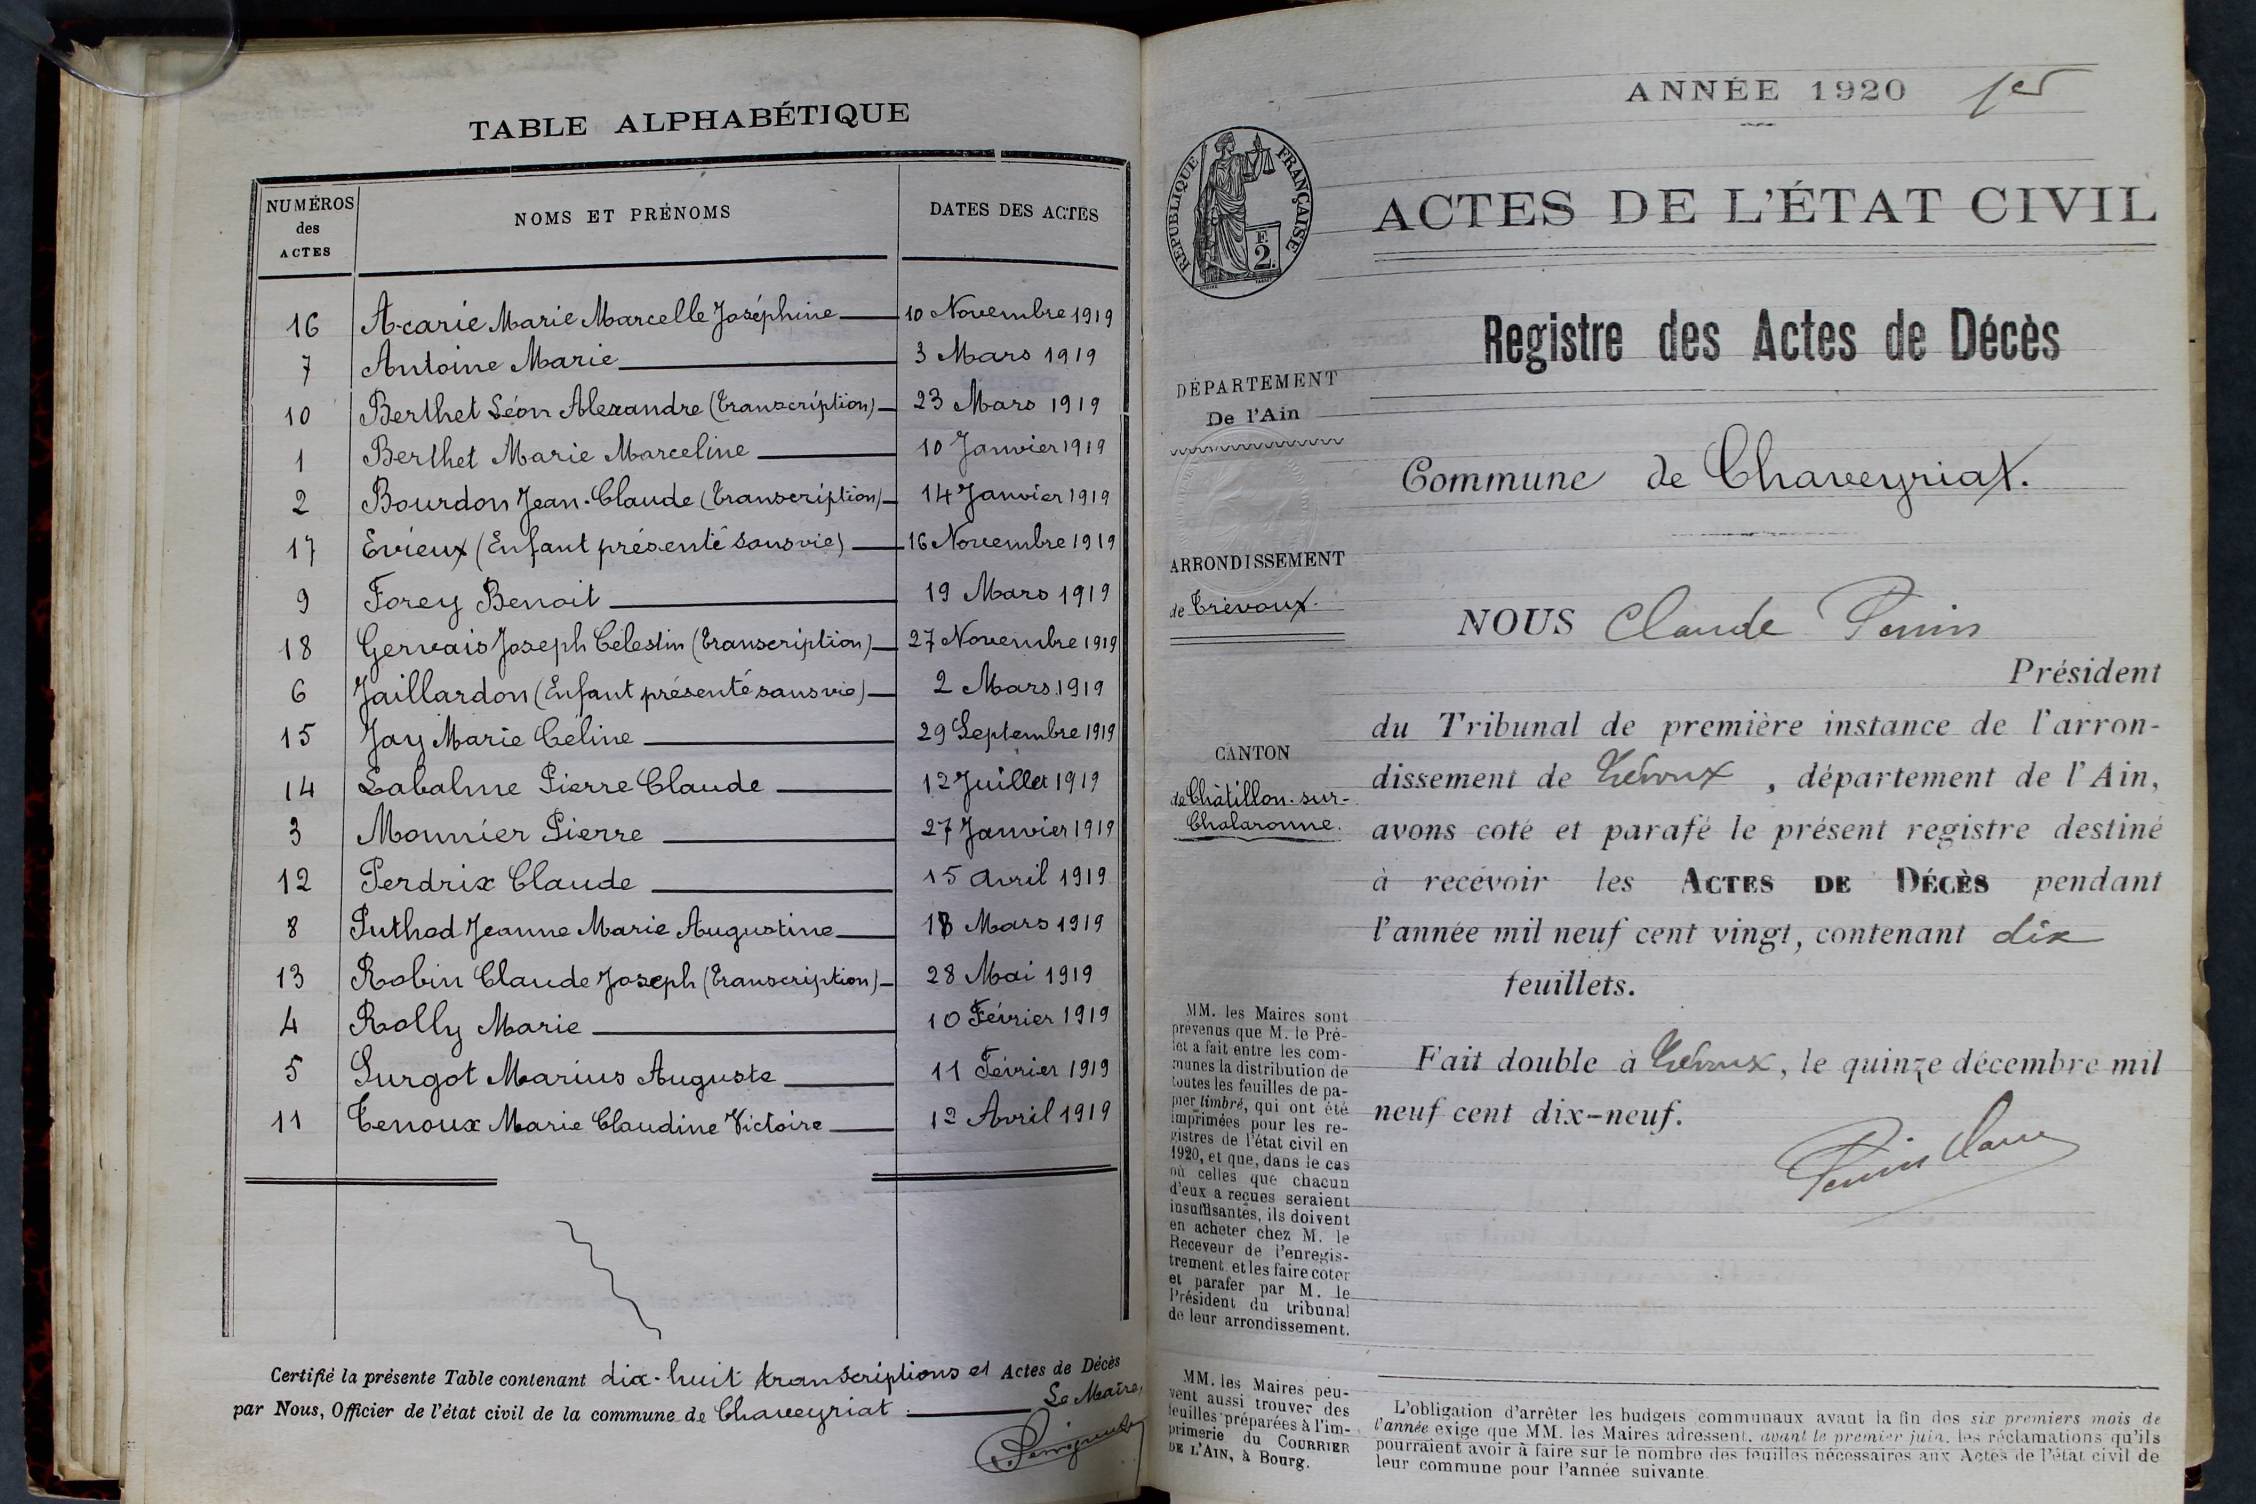 TABLE ALPHABÉTIQUE
NUMÉROS des ACTES NOMS ET PRÉNOMS DATES DES ACTES
16 Acarie Marie Marcelle Joséphine 10 Novembre 1919
7 Antoine Marie 3 Mars 1919
10 Berthet Léon Alexandre (transcription) 23 Mars 1919
1 Berthet Marie Marceline 10 Janvier 1919
2 Bourdon Jean-Claude (transcription) 14 Janvier 1919
17 Evieux (Enfant présenté sans vie) 16 Novembre 1919
9 Forey Benoit 19 Mars 1919
18 Gervais Joseph Célestin (transcription) 27 Novembre 1919
6 Jaillardon (Enfant présenté sans vie) 2 Mars 1919
15 Jay Marie Céline 29 Septembre 1919
14 Labalme Pierre Claude 12 Juillet 1919
3 Monnier Pierre 27 Janvier 1919
12 Perdrix Claude 15 avril 1919
8 Puthod Jeanne Marie Augustine 18 Mars 1919
13 Robin Claude Joseph (transcription) 28 Mai 1919
4 Rolly Marie 10 Février 1919
5 Surgot Marius Auguste 11 Février 1919
11 Tenoux Marie Claudine Victoire 12 Avril 1919
Certifié la présente Table contenant dix-huit transcriptions et Actes de Décès
par Nous, Officier de l'état civil de la commune de Chaveyriat
Le Maire,
ANNÉE 1920 1er
RÉPUBLIQUE FRANÇAISE
F.
2.
ACTES DE L'ÉTAT CIVIL
Registre des Actes de Décès
DÉPARTEMENT
De l'Ain
Commune de Chaveyriat.
ARRONDISSEMENT
de Trévoux.
CANTON
de Châtillon-sur-
Chalaronne.
NOUS Claude Perrin
Président
du Tribunal de première instance de l'arron-
dissement de Trévoux, département de l'Ain,
avons coté et parafé le présent registre destiné
à recevoir les ACTES DE DÉCÈS pendant
l'année mil neuf cent vingt, contenant dix
feuillets.
Fait double à Trévoux, le quinze décembre mil
neuf cent dix-neuf.
Perrin Claude
MM. les Maires sont
prévenus que M. le Pré-
fet a fait entre les com-
munes la distribution de
toutes les feuilles de pa-
pier timbré, qui ont été
imprimées pour les re-
gistres de l'état civil en
1920, et que, dans le cas
où celles que chacun
d'eux a reçues seraient
insuffisantes, ils doivent
en acheter chez M. le
Receveur de l'enregis-
trement et les faire coter
et parafer par M. le
Président du tribunal
de leur arrondissement.
MM. les Maires peu-
vent aussi trouver des
feuilles préparées à l'im-
primerie du COURRIER
DE L'AIN, à Bourg.
L'obligation d'arrêter les budgets communaux avant la fin des six premiers mois de
l'année exige que MM. les Maires adressent, avant le premier juin, les réclamations qu'ils
pourraient avoir à faire sur le nombre des feuilles nécessaires aux Actes de l'état civil de
leur commune pour l'année suivante.